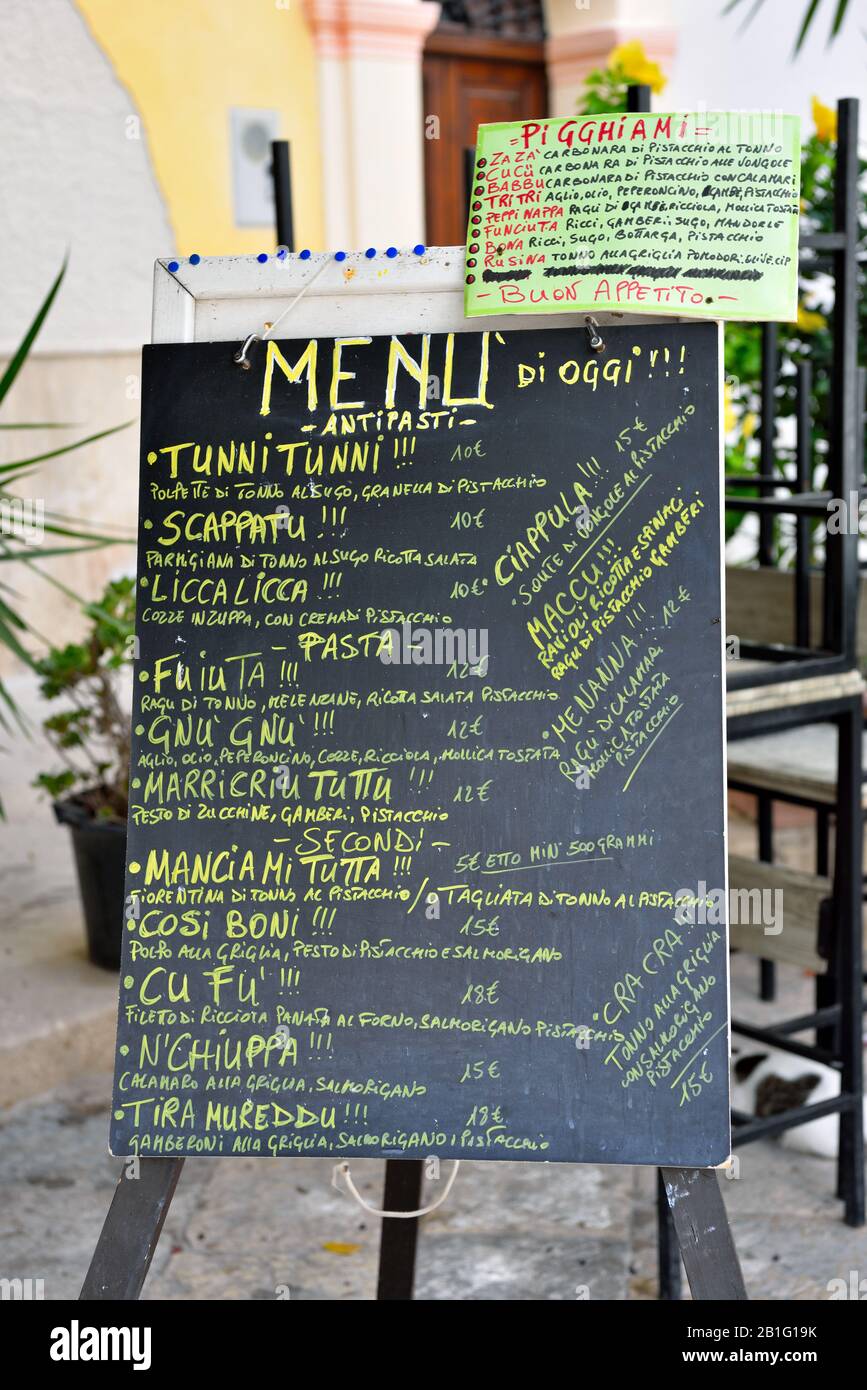 =PIGGHIAMI=
ZAZA' CARBONARA DI PISTACCHIO AL TONNO
CUCÙ CARBONARA DI PISTACCHIO ALLE VONGOLE
BABBU CARBONARA DI PISTACCHIO CON CALAMARI
TRITRI AGLIO, OLIO, PEPERONCINO, GAMBE, PISTACCHIO
PEPPI NAPPA RAGÙ DI GAMBE, RICCIOLA, MOLLICA TOSTATA
FUNCIUTA RICCI, GAMBERI, SUGO, MANDORLE
BONA RICCI, SUGO, BOTTARGA, PISTACCHIO
RUSINA TONNO ALLA GRIGLIA POMODORI. OLIVE. CIP
- BUON APPETITO -
MENÙ DI OGGI'!!!
- ANTIPASTI -
• TUNNI TUNNI!!! 10€
POLPETTE DI TONNO AL SUGO, GRANELLA DI PISTACCHIO
• SCAPPATU!!! 10€
PARMIGIANA DI TONNO AL SUGO RICOTTA SALATA
• LICCA LICCA!!! 10€
COZZE IN ZUPPA, CON CREMA DI PISTACCHIO
• CIAPPULA!!! 15€
SOUTE DI VONGOLE AL PISTACCHIO
- PASTA -
• FUIUTA!!! 12€
RAGU DI TONNO, MELENZANE, RICOTTA SALATA PISTACCHIO
• GNU' GNU'!!! 12€
AGLIO, OLIO, PEPERONCINO, COZZE, RICCIOLA, MOLLICA TOSTATA
• MARRICRIU TUTTU!!! 12€
PESTO DI ZUCCHINE, GAMBERI, PISTACCHIO
MACCU!!!
RAVIOLI RICOTTA E SPINACI
RAGU DI PISTACCHIO GAMBERI
• MENANNA!!! 12€
RAGÙ DI CALAMARI
MOLLICA TOSTATA
PISTACCHIO
- SECONDI -
• MANCIAMI TUTTA!!! 5€ ETTO MIN' 500 GRAMMI
FIORENTINA DI TONNO AL PISTACCHIO / O TAGLIATA DI TONNO AL PISTACCHIO
• COSI BONI!!! 15€
POLPO ALLA GRIGLIA, PESTO DI PISTACCHIO E SALMORIGANO
• CU FU'!!! 18€
FILETTO DI RICCIOLA PANATA AL FORNO, SALMORIGANO PISTACCHIO
• N'CHIUPPA!!! 15€
CALAMARO ALLA GRIGLIA, SALMORIGANO
• TIRA MUREDDU!!! 18€
GAMBERONI ALLA GRIGLIA, SALMORIGANO PISTACCHIO
• CRA CRA!!!
TONNO ALLA GRIGLIA
CON SALMORIGANO
PISTACCHIO
15€
alamy
Image ID: 2B1G19K
www.alamy.com